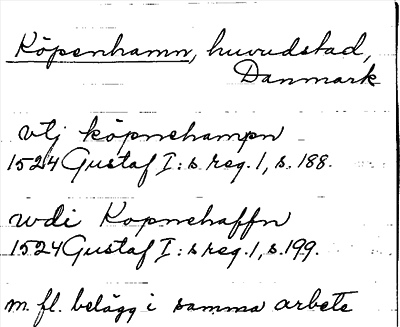 Köpenhamn, huvudstad,
Danmark
vtj köpnehampn
1524 Gustaf I:s reg. 1, s. 188.
wdi Kopnehaffn
1524 Gustaf I:s reg. 1, s. 199.
m. fl. belägg i samma arbete